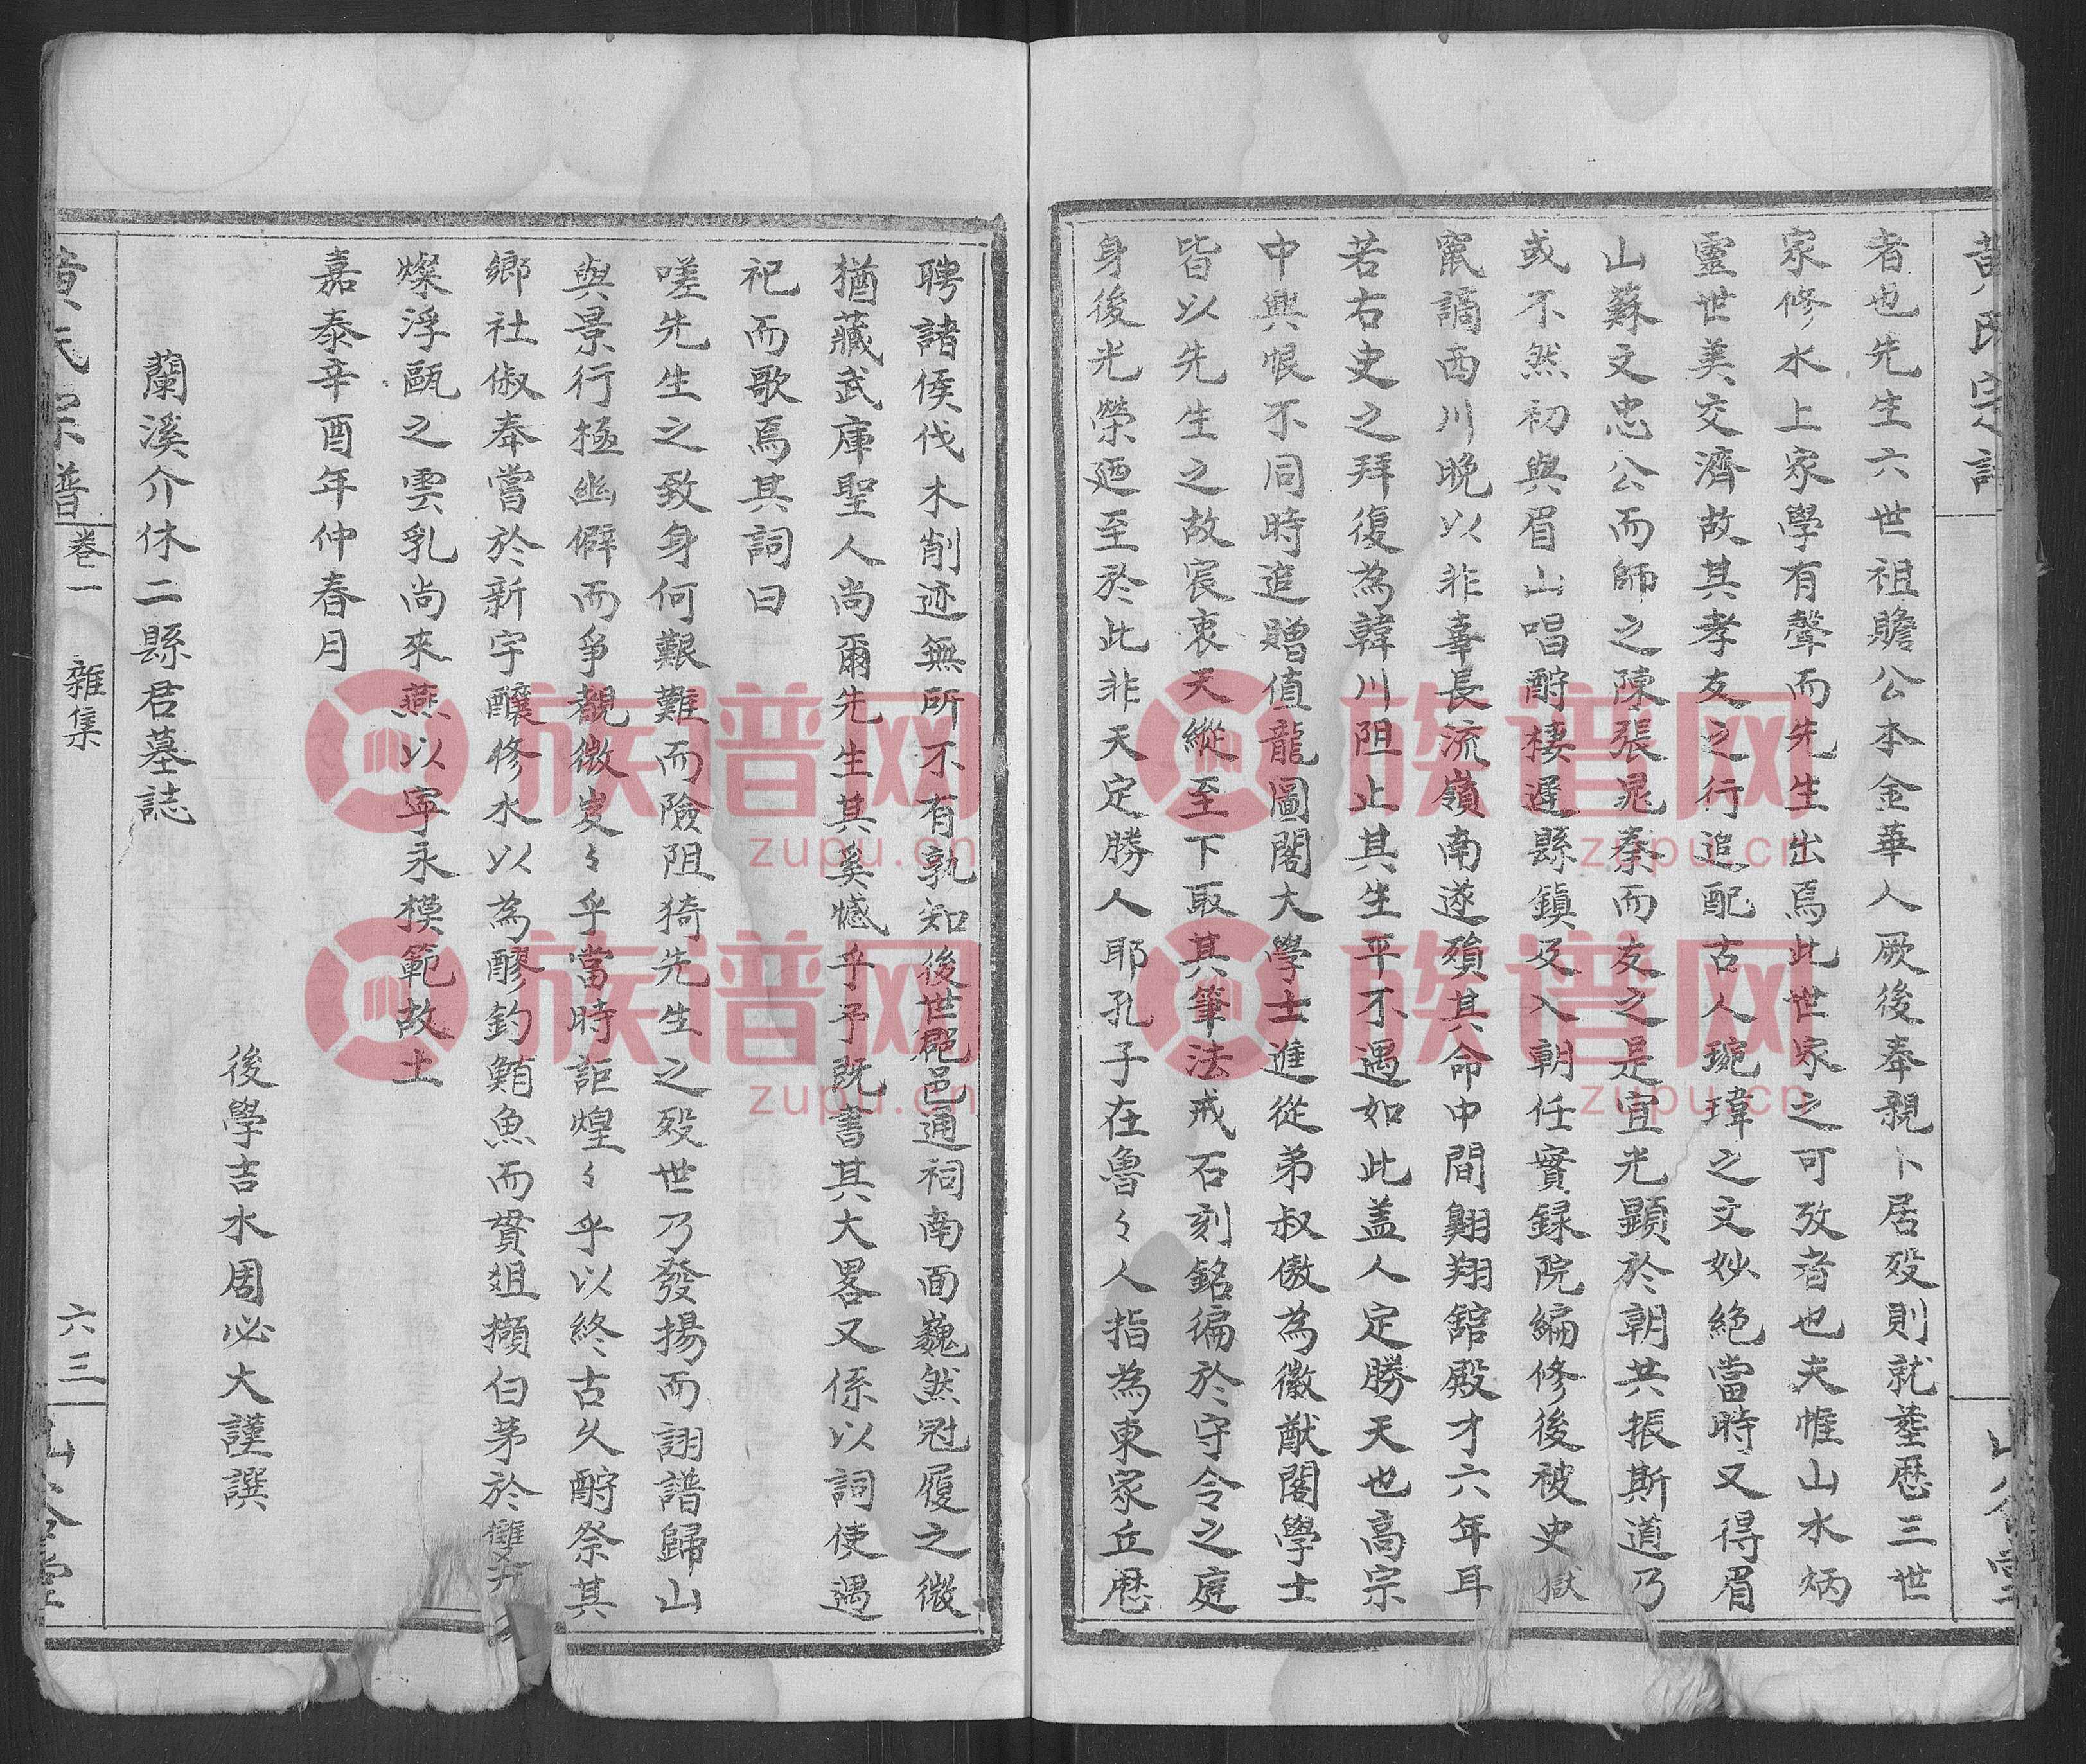 者也先生六世祖贍公本金華人厥後奉親卜居歿則就塟歷三世
家修水上家學有聲而先生出焉此世家之可攷者也夫惟山水炳
靈世美交濟故其孝友之行追配古人琬瑋之文妙絕當時又得眉
山蘇文忠公而師之陳張晁秦而友之是宜光顯於朝共振斯道乃
或不然初與眉山唱酧棲遲縣鎮及入朝任實録院編修後被史獄
竄謫西川晚以非辜長流嶺南遂殞其命中間翺翔舘殿才六年耳
若右史之拜復為韓川阻止其生平不遇如此盖人定勝天也高宗
中興恨不同時追贈值龍圖閣大學士進從弟叔傲為徽猷閣學士
皆以先生之故宸衷天縱至下取其筆法戒石刻銘徧於守令之庭
身後光榮廼至於此非天定勝人耶孔子在魯々人指為東家丘歷
聘諸侯伐木削迹無所不有孰知後世郡邑通祠南面巍然冠履之徽
猶藏武庫聖人尚爾先生其奚憾乎予既書其大畧又係以詞使遇
祀而歌焉其詞曰
嗟先生之致身何艱難而險阻猗先生之歿世乃發揚而詡譜歸山
與景行極幽僻而爭覩微岌々乎當時詎煌々乎以終古久酧祭其
鄉社俶奉嘗於新宇釀修水以為醪釣鮪魚而貫俎擷白茅於雙
燦浮甌之雲乳尚來燕以寧永模範故土
嘉泰辛酉年仲春月
後學吉水周必大謹譔
蘭溪介休二縣君墓誌
黄氏宗譜
卷一
雜集
六三
族谱网
zupu.cn
族谱网
zupu.cn
族谱网
zupu.cn
族谱网
zupu.cn